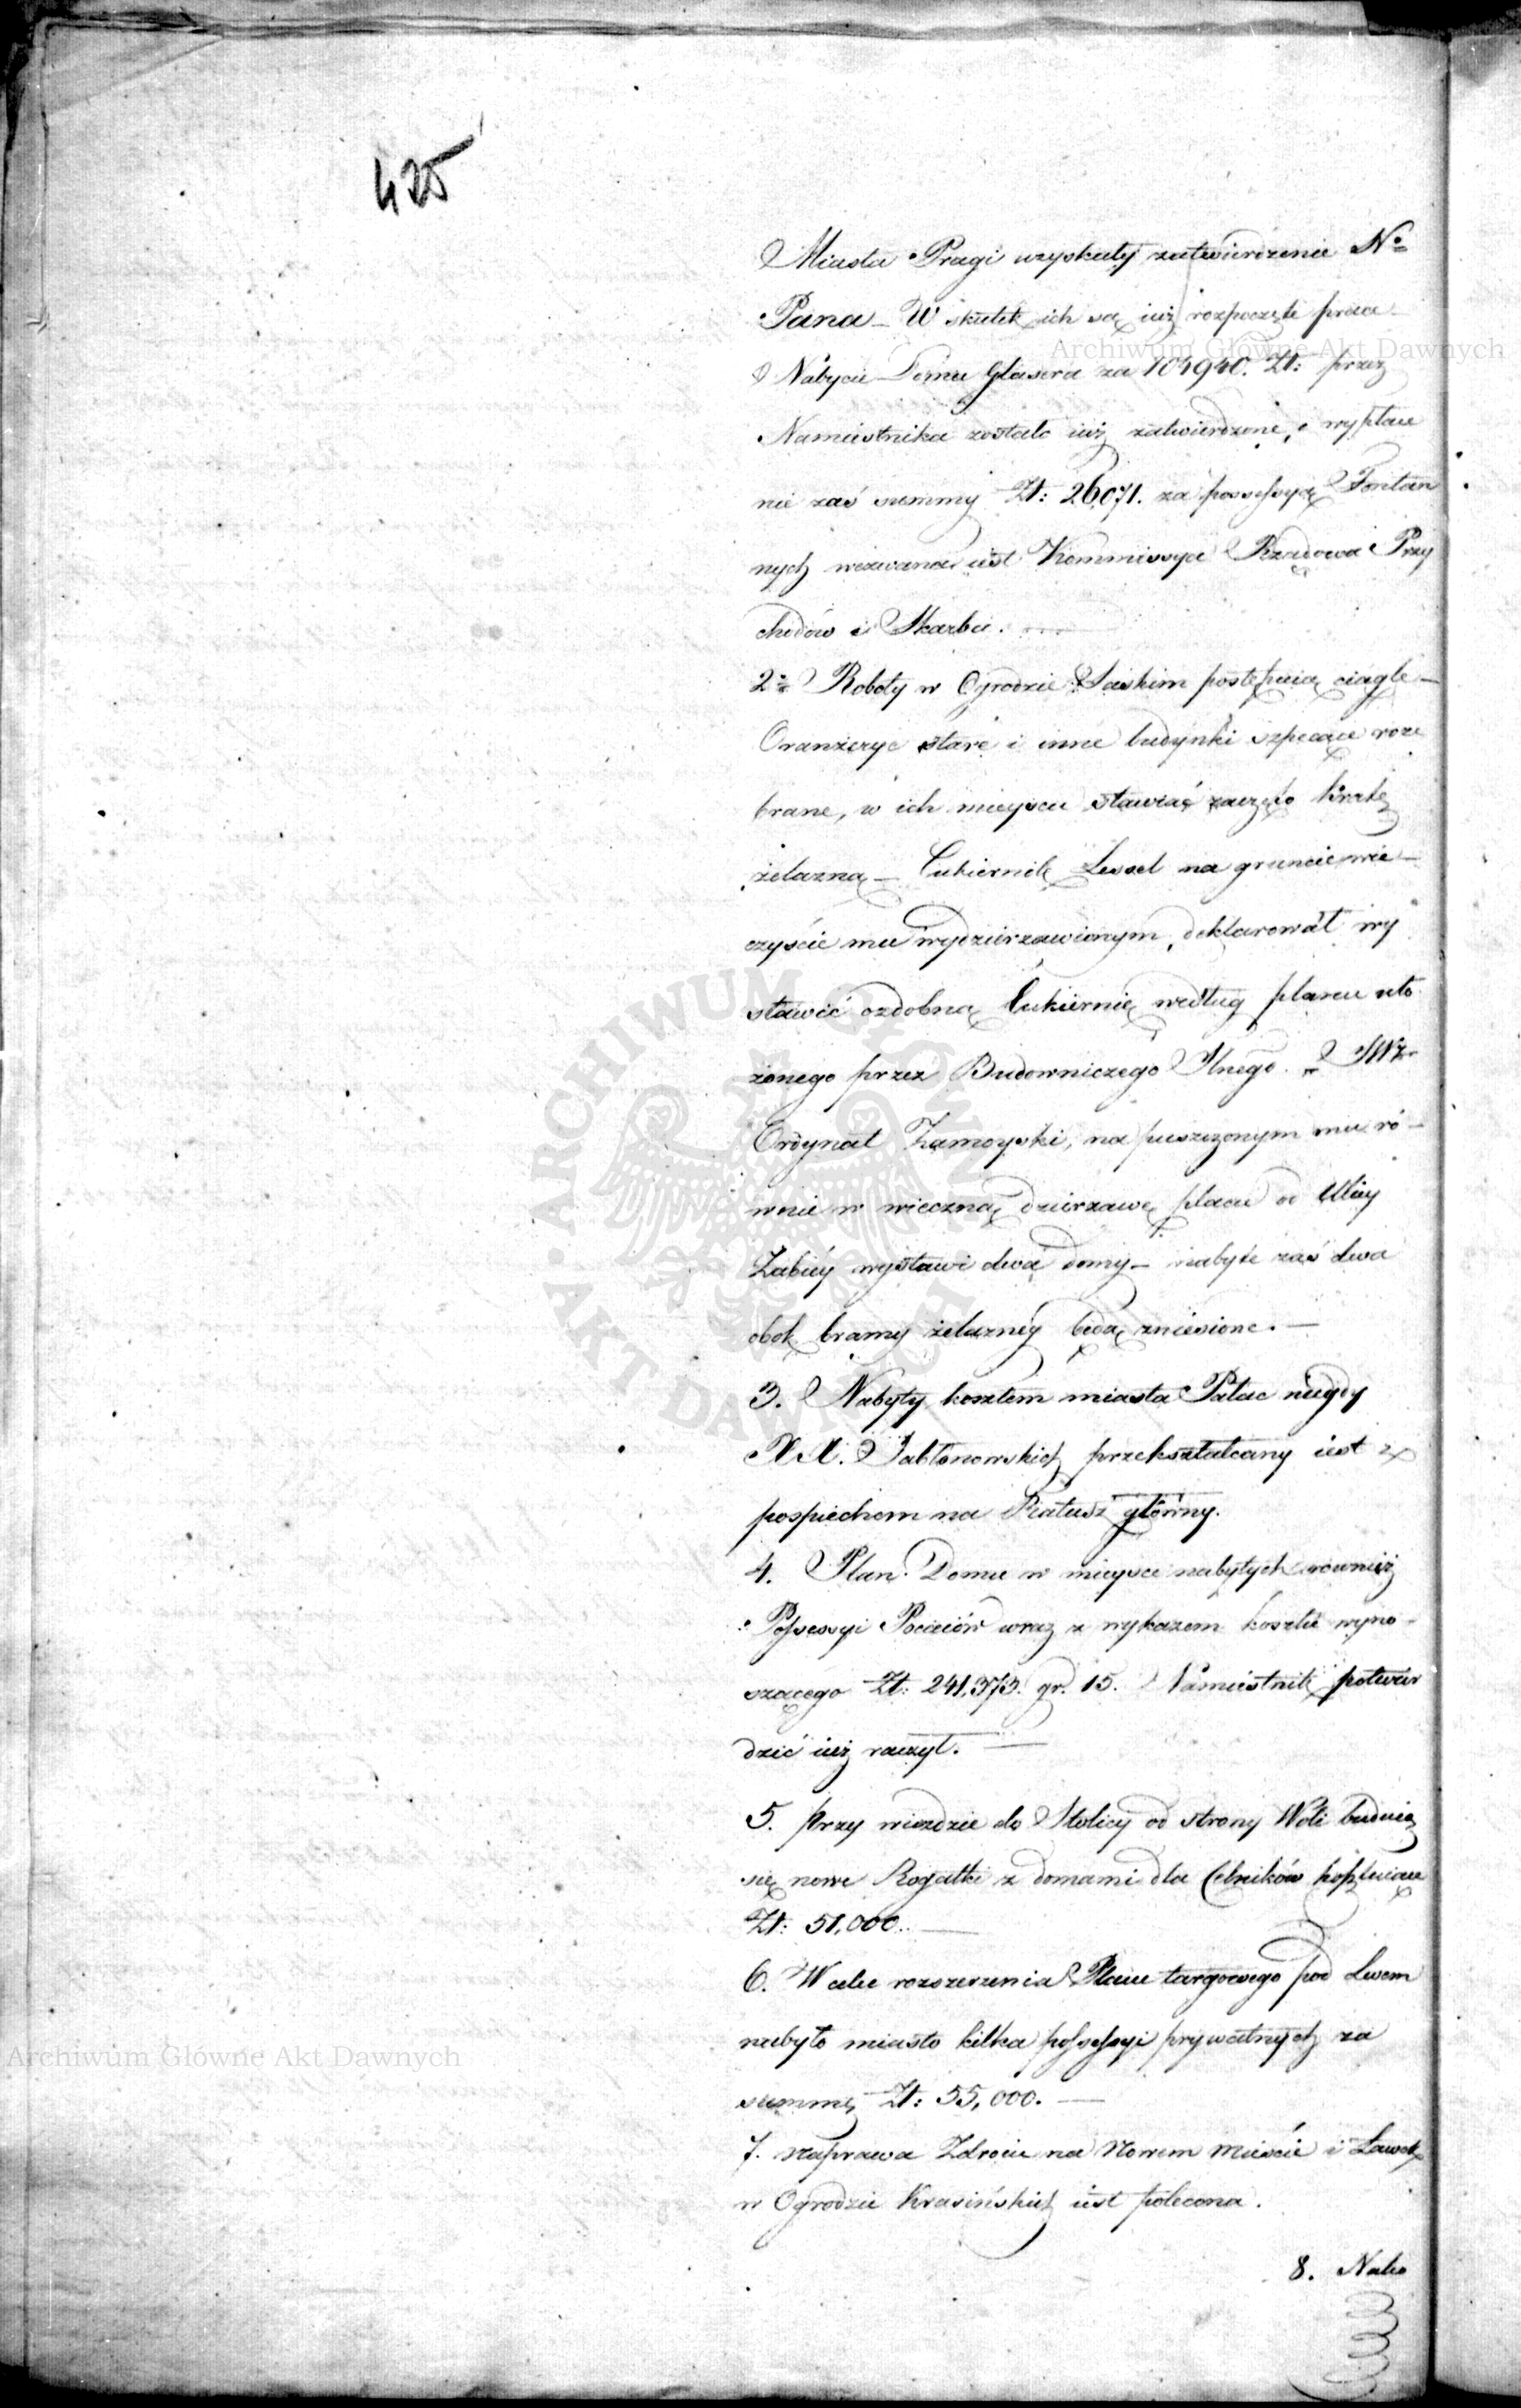 425
Miasta Pragi uzyskały zatwierdzenie No
Pana – W skutek ich są iuż rozpoczęte prace
Nabycie Domu Glasera za 104940. Zł: przez
Namiestnika zostało iuż zatwierdzone, o wypłace
nie zaś summy Zł: 26,071. za possessyą Fontan
nych wezwana iest Kommissya Rządowa Przy
chodów i Skarbu.
2o Roboty w Ogrodzie Saskim postępuią ciągle –
Oranżerye stare i inne budynki szpecące roze
brane, w ich mieyscu stawiać zaczęto kratę
żelazną – Cukiernik Lessel na gruncie wie–
czyście mu wydzierzawionym, deklarował wy
stawić ozdobną Cukiernię według planu uło
żonego przez Budowniczego Jlnego. – JWż
Ordynat Zamoyski, na puszczonym mu ró–
wnie w wieczną dzierzawę placu od Ulicy
Żabiéy wystawi dwa domy – nabyte zaś dwa
obok bramy żelaznéy będą zniesione. –
3. Nabyty kosztem miasta Pałac niegdy
XX. Jabłonowskich przekształcany iest z
pospiechem na Ratusz główny.
4. Plan Domu w mieysce nabytych również
Possessyi Pociejów wraz z wykazem kosztu wyno–
szącego Zł: 241,373. gr. 15. Namiestnik potwier
dzić iuż raczył. –
5. Przy wieździe do Stolicy od strony Woli buduią
się nowe Rogatki z domami dla Celników kosztuiące
Zł: 51,000. –
6. W celu rozszerzenia Placu targowego pod Lwem
nabyło miasto kilka possessyi prywatnych za
summę Zł: 55,000. –
7. Naprawa Zdroiu na Nowem Mieście i Ławek
w Ogrodzie Krasińskich iest polecona.
8. Nabo
Archiwum Główne Akt Dawnych
Archiwum Główne Akt Dawnych
ARCHIWUM GŁÓWNE AKT DAWNYCH